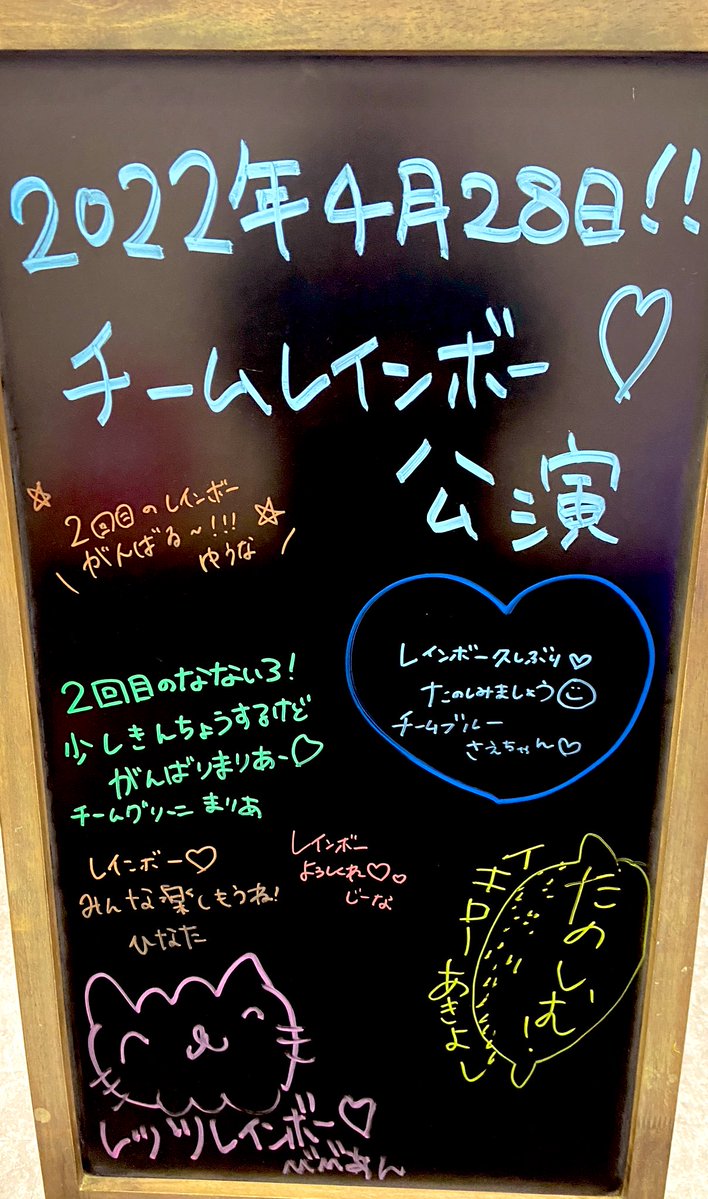 2022年4月28日!!
チームレインボー♡
公演
☆2回目のレインボー
がんばる〜!!!☆
ゆうな
レインボー久しぶり♡
たのしみましょう☺
チームブルー
さえちゃん♡
2回目のなないろ!
少しきんちょうするけど
がんばりまりあー♡
チームグリーン まりあ
レインボー♡
みんな楽しもうね!
ひなた
レインボー
よろしくれ♡♡
じーな
たのしむ!
イエローあきよし
レッツレインボー♡
べべあん